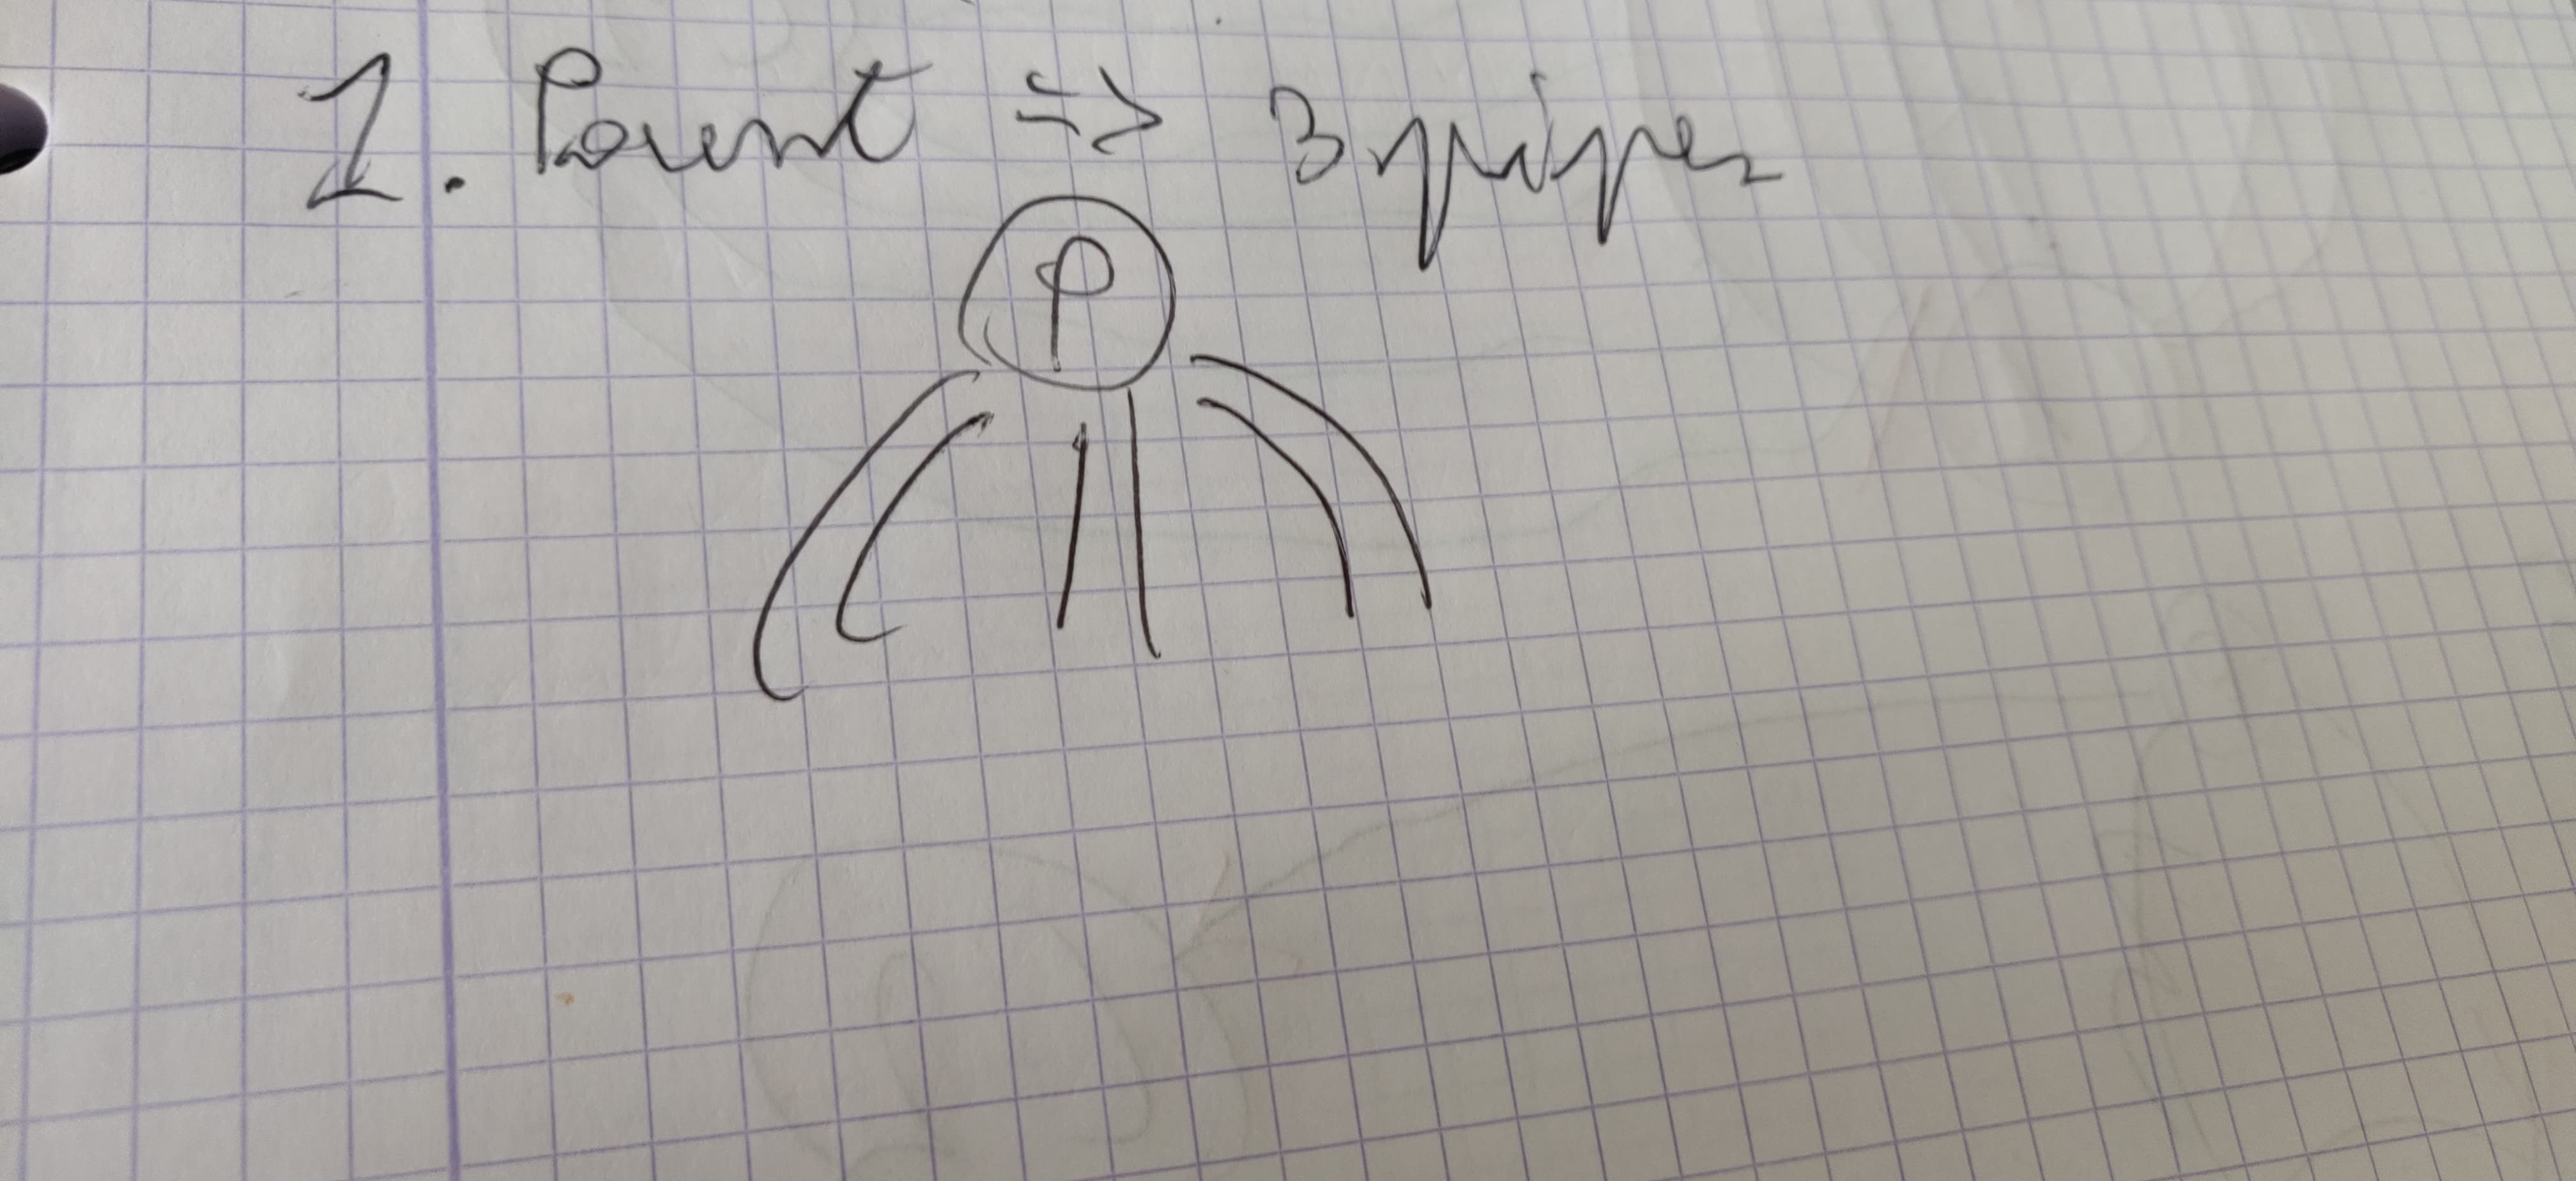 1. Parent => 3 pipes
P